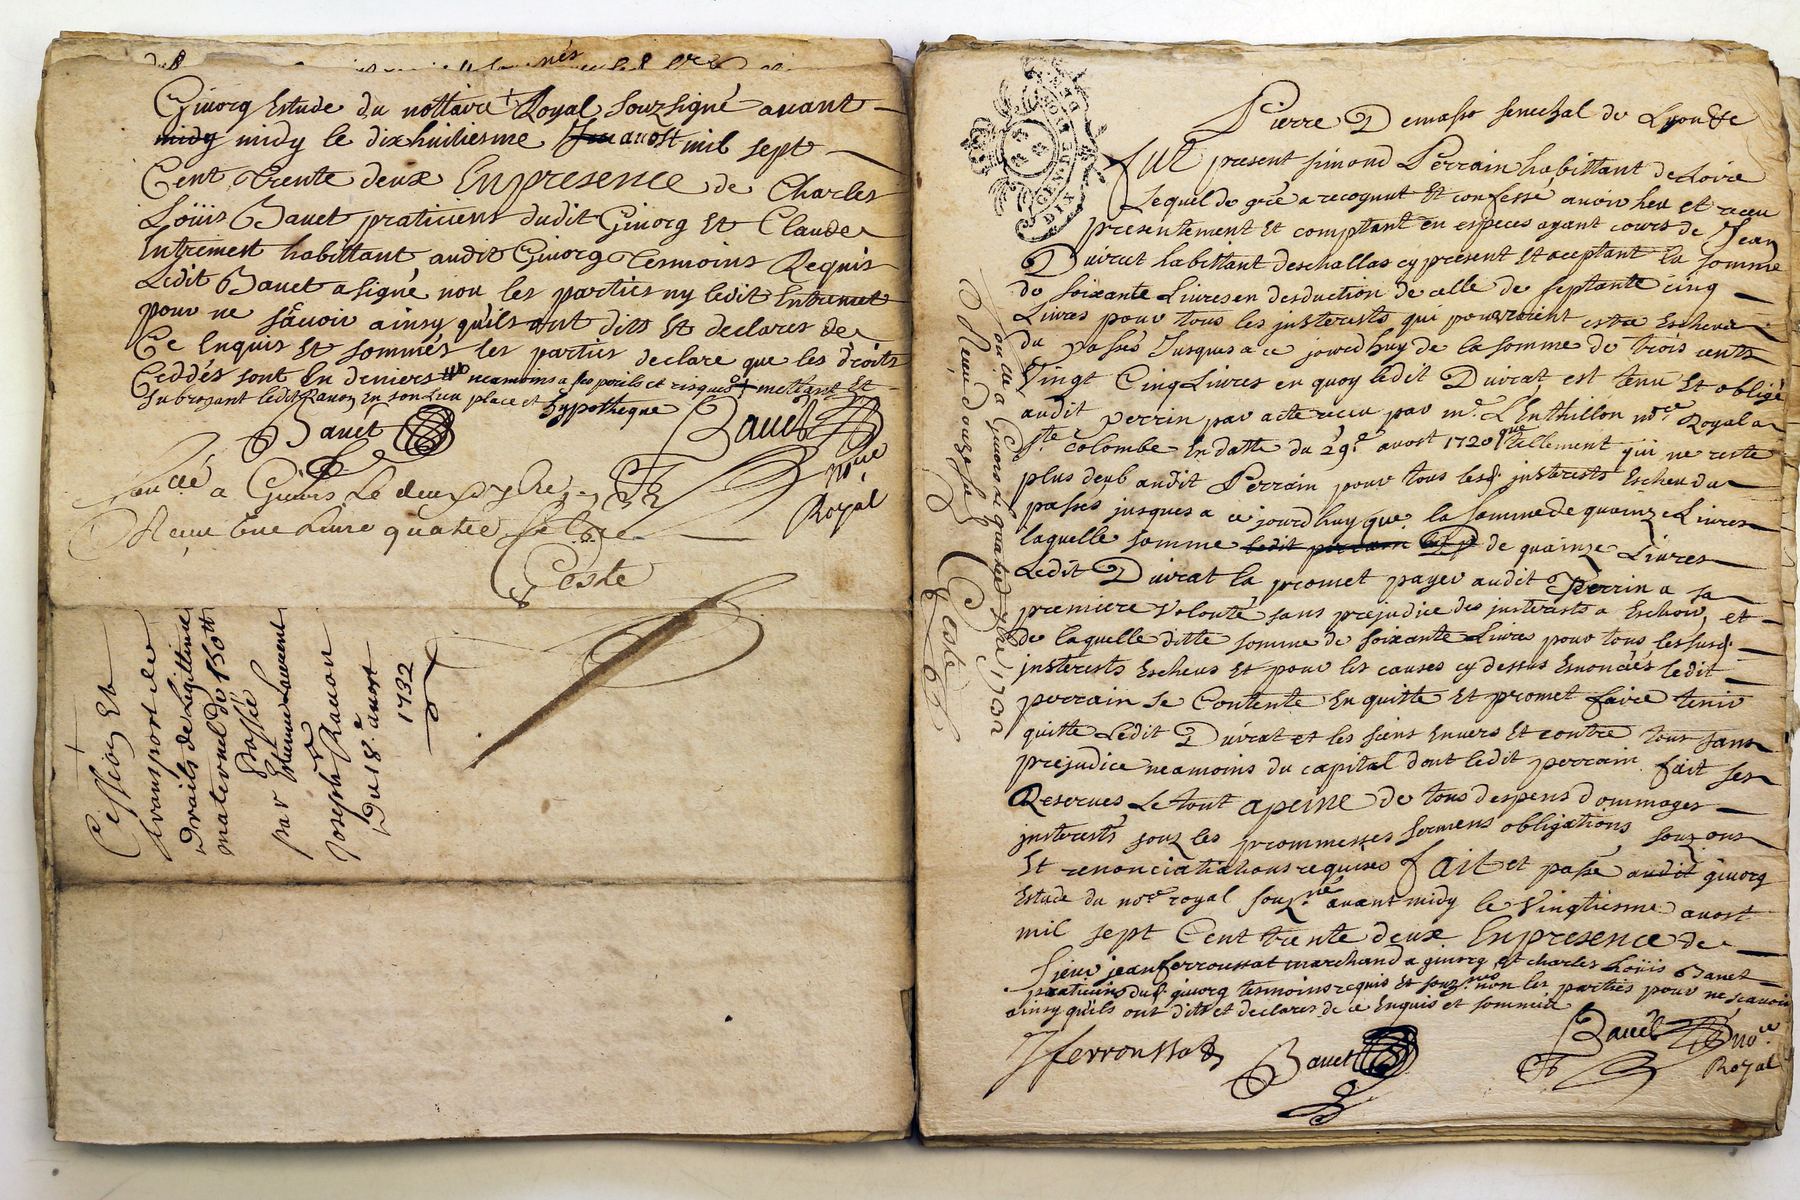 Givorg Estude du nottaire Royal souzsigné avant
midy midy le dixhuitiesme avost mil sept
Cent trente deux En presence de Charles
Loüis Bavet praticiens dudit Givorg Et Claude
Entremont habittant audit Givorg Tesmoins Requis
Ledit Bavet a signé non les parties ny ledit Entremet
pour ne sçavoir ainsy qu'ils ont dits Et declares de
Ce Enquis Et sommés les parties declare que les droits
Ceddés sont En deniers neamoins a ses perils et risques mettant Et
Subrogant ledit Ravon En son Lieu place et hypotheque
Bavet
Bavet
no.re
Royal
a Givors Le deux 7bre
Reçeu une Livre quatre sols
Geste
Cession Et
transport des
Droits de Legittime
maternel de 150 tt
Passée
par Estienne Laurent
a
Joseph Ravon
Du 18.e avost
1732
DIX
GEN DE LYON
Pierre Demasso senechal de Lyon &c
fut present simond Perrain habittant de Loire
Lequel de gré a recognut Et confessé avoir heu et receu
presentement Et comptant en especes ayant cours de Jean
Duivrat habittant deschallas cy present Et aceptant La somme
de soixante Livres en desduction de celle de septante cinq
Livres pour tous les justerests qui pouvroient estre Escheus
du passés Jusques a ce jourdhuy de la somme de trois cents
Vingt Cinq Livres en quoy ledit Duivrat est tenu Et obligé
audit perrin par acte receu par m.e L'Enthillon no.re Royal a
S.te Colombe En datte du 29.e avost 1720 tellement qu'il ne reste
plus deub audit Perrain pour tous lesd. justerests Escheu du
passés jusques a ce jourdhuy que la somme de quainze Livres
laquelle somme ledit perrain de quainze Livres
Ledit Duivrat la promet payer audit Perrin a sa
premiere volonté sans prejudice des justerests a Eschoir, et
de laquelle ditte somme de soixante Livres pour tous les susd.
justerests Escheus Et pour les causes cy dessus Enoncées ledit
perrain se Contente En quitte Et promet faire tenir
quitte Ledit Duivrat et les siens Envers Et contre tous sans
prejudice neamoins du capital dont ledit perrain fait ses
Reserves Le tout a peine de tous despens dommages
justerests souz les prommesses sermens obligations souzons
Et renonciations requises fait et passé audit givorg
Estude du no.re royal souz.né avant midy le Vingtiesme avost
mil sept Cent trente deux En presence de
sieur jean ferroussat marchand a givorg et charles Loüis Bavet
praticiens dud. givorg tesmoins requis Et souz.nés non les parties pour ne scavoir
ainsy qu'ils ont dits et declares de ce Enquis et sommés
Jferroussat
Bavet
Bavet no.re
Royal
a Givors Le quatre 7bre 1732
Reçeu douze sols
Geste